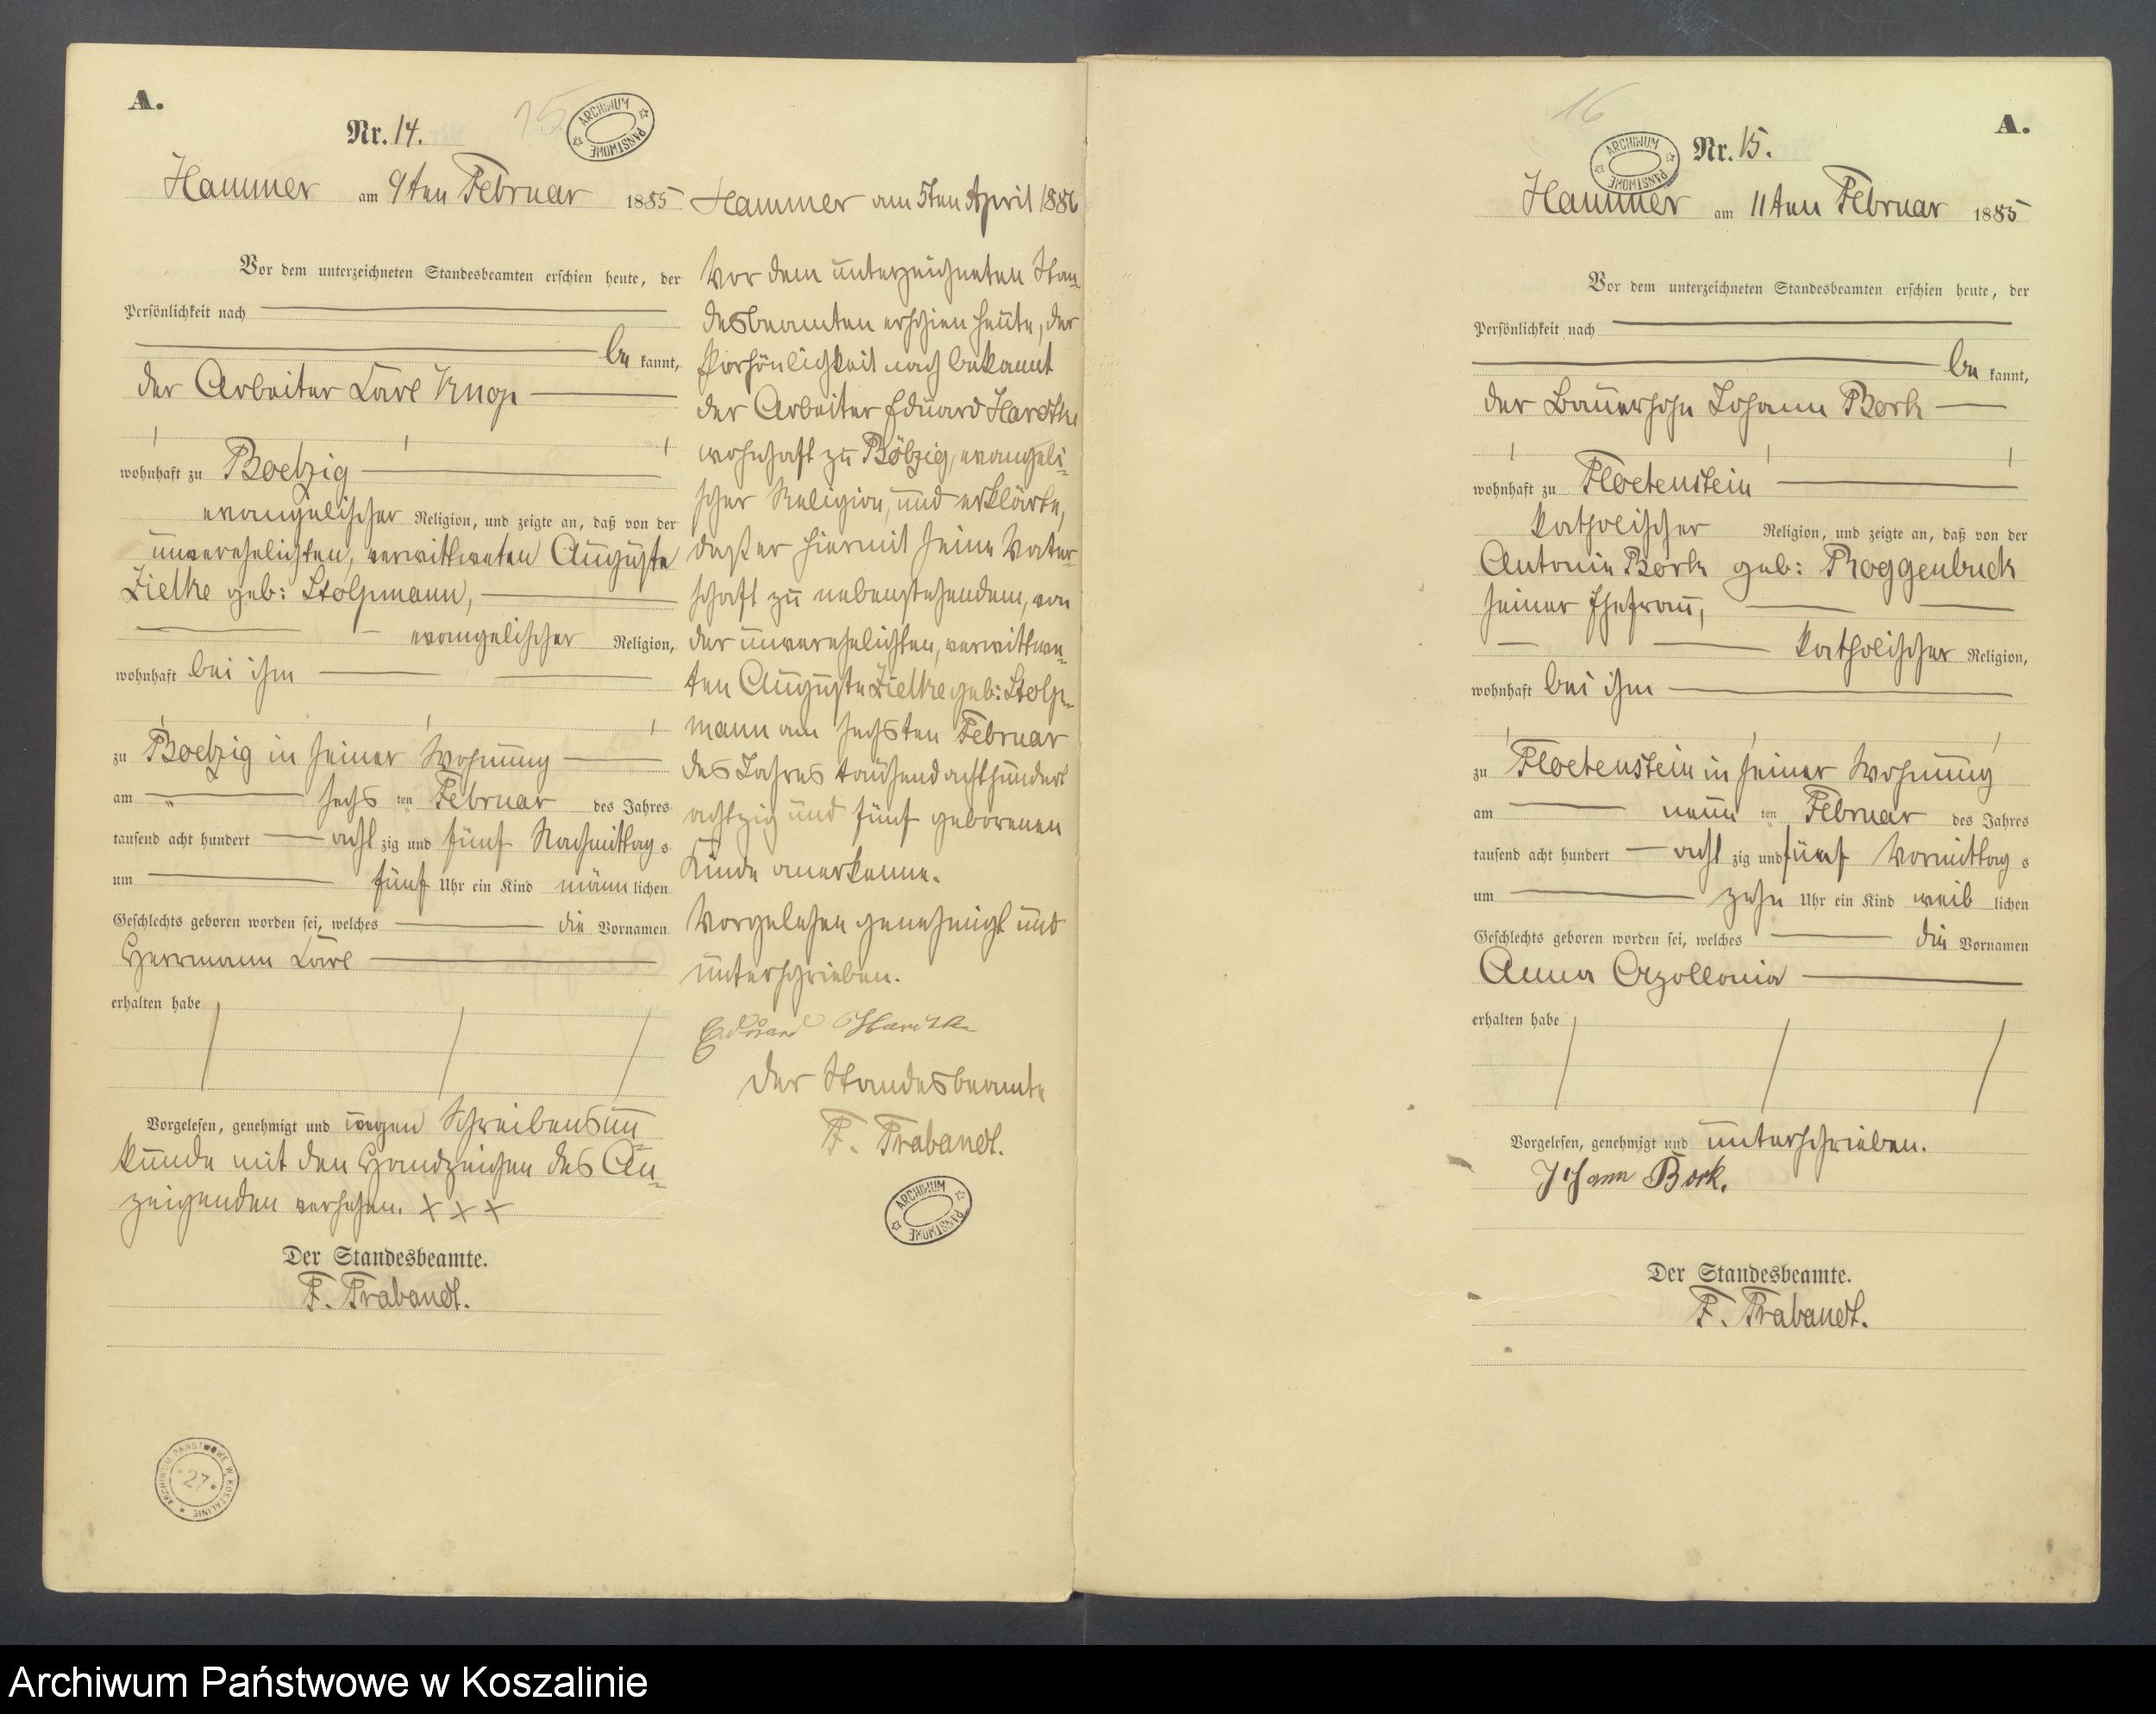 A.
15
ARCHIWUM PAŃSTWOWE
Nr. 14.
Hammer am 9ten Februar 1885
Vor dem unterzeichneten Standesbeamten erschien heute, der
Persönlichkeit nach
be kannt,
der Arbeiter Carl Knop
wohnhaft zu Boetzig
evangelischer Religion, und zeigte an, daß von der
unverehelichten, verwittweten Auguste
Zielke geb: Stolpmann,
evangelischer Religion,
wohnhaft bei ihm
zu Boetzig in seiner Wohnung
am sechs ten Februar des Jahres
tausend acht hundert acht zig und fünf Nachmittag s
um fünf Uhr ein Kind männ lichen
Geschlechts geboren worden sei, welches die Vornamen
Herrmann Carl
erhalten habe
Vorgelesen, genehmigt und wegen Schreibensun=
kunde mit den Handzeichen des An=
zeigenden versehen. x x x
Der Standesbeamte.
F. Trabandt.
ARCHIWUM PAŃSTWOWE W KOSZALINIE
27
Hammer am 5ten April 1886
Vor dem unterzeichneten Stan=
desbeamten erschien heute, der
Persönlichkeit nach bekannt
der Arbeiter Eduard
wohnhaft zu Bötzig, evangeli=
scher Religion, und erklärte,
daß er hiermit seine Vater=
schaft zu nebenstehendem, von
der unverehelichten, verwittwe=
ten Auguste Zielke geb: Stolp=
mann am sechsten Februar
des Jahres tausend achthundert
achtzig und fünf geborenen
Kinde anerkenne.
Vorgelesen genehmigt und
unterschrieben.
Eduard
Der Standesbeamte
F. Trabandt.
ARCHIWUM PAŃSTWOWE
16
A.
ARCHIWUM PAŃSTWOWE
Nr. 15.
Hammer am 11ten Februar 1885
Vor dem unterzeichneten Standesbeamten erschien heute, der
Persönlichkeit nach
be kannt,
der Bauersohn Johann Bork
wohnhaft zu Floetenstein
katholischer Religion, und zeigte an, daß von der
Antonie Bork geb: Roggenbuck
seiner Ehefrau,
katholischer Religion,
wohnhaft bei ihm
zu Floetenstein in seiner Wohnung
am neun ten Februar des Jahres
tausend acht hundert acht zig und fünf Vormittag s
um zehn Uhr ein Kind weib lichen
Geschlechts geboren worden sei, welches die Vornamen
Anna Apollonia
erhalten habe
Vorgelesen, genehmigt und unterschrieben.
Johann Bork.
Der Standesbeamte.
F. Trabandt.
Archiwum Państwowe w Koszalinie